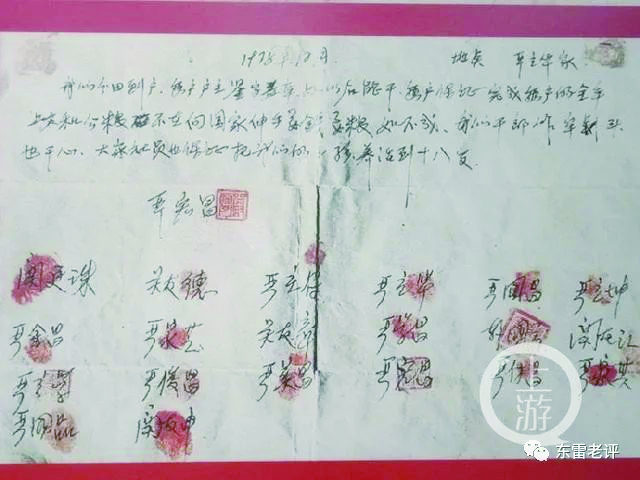 1978年12月 地点 严立华家
我们分田到户，每户户主签字盖章，如以后能干，每户保证完成每户的全年
上交和公粮 不在向国家伸手要钱要粮 如不成，我们干部作牢刹头
也干心，大家社员也保证把我们的小孩养活到十八岁
严宏昌
关廷珠 关友德 严立符 严立华 严国昌 严立坤
严金昌 严家芝 关友章 严学昌 韩国云 关友江
严立学 严俊昌 严美昌 严宏昌 严付昌 严家其
严国品 关友申
上游
东雷老评